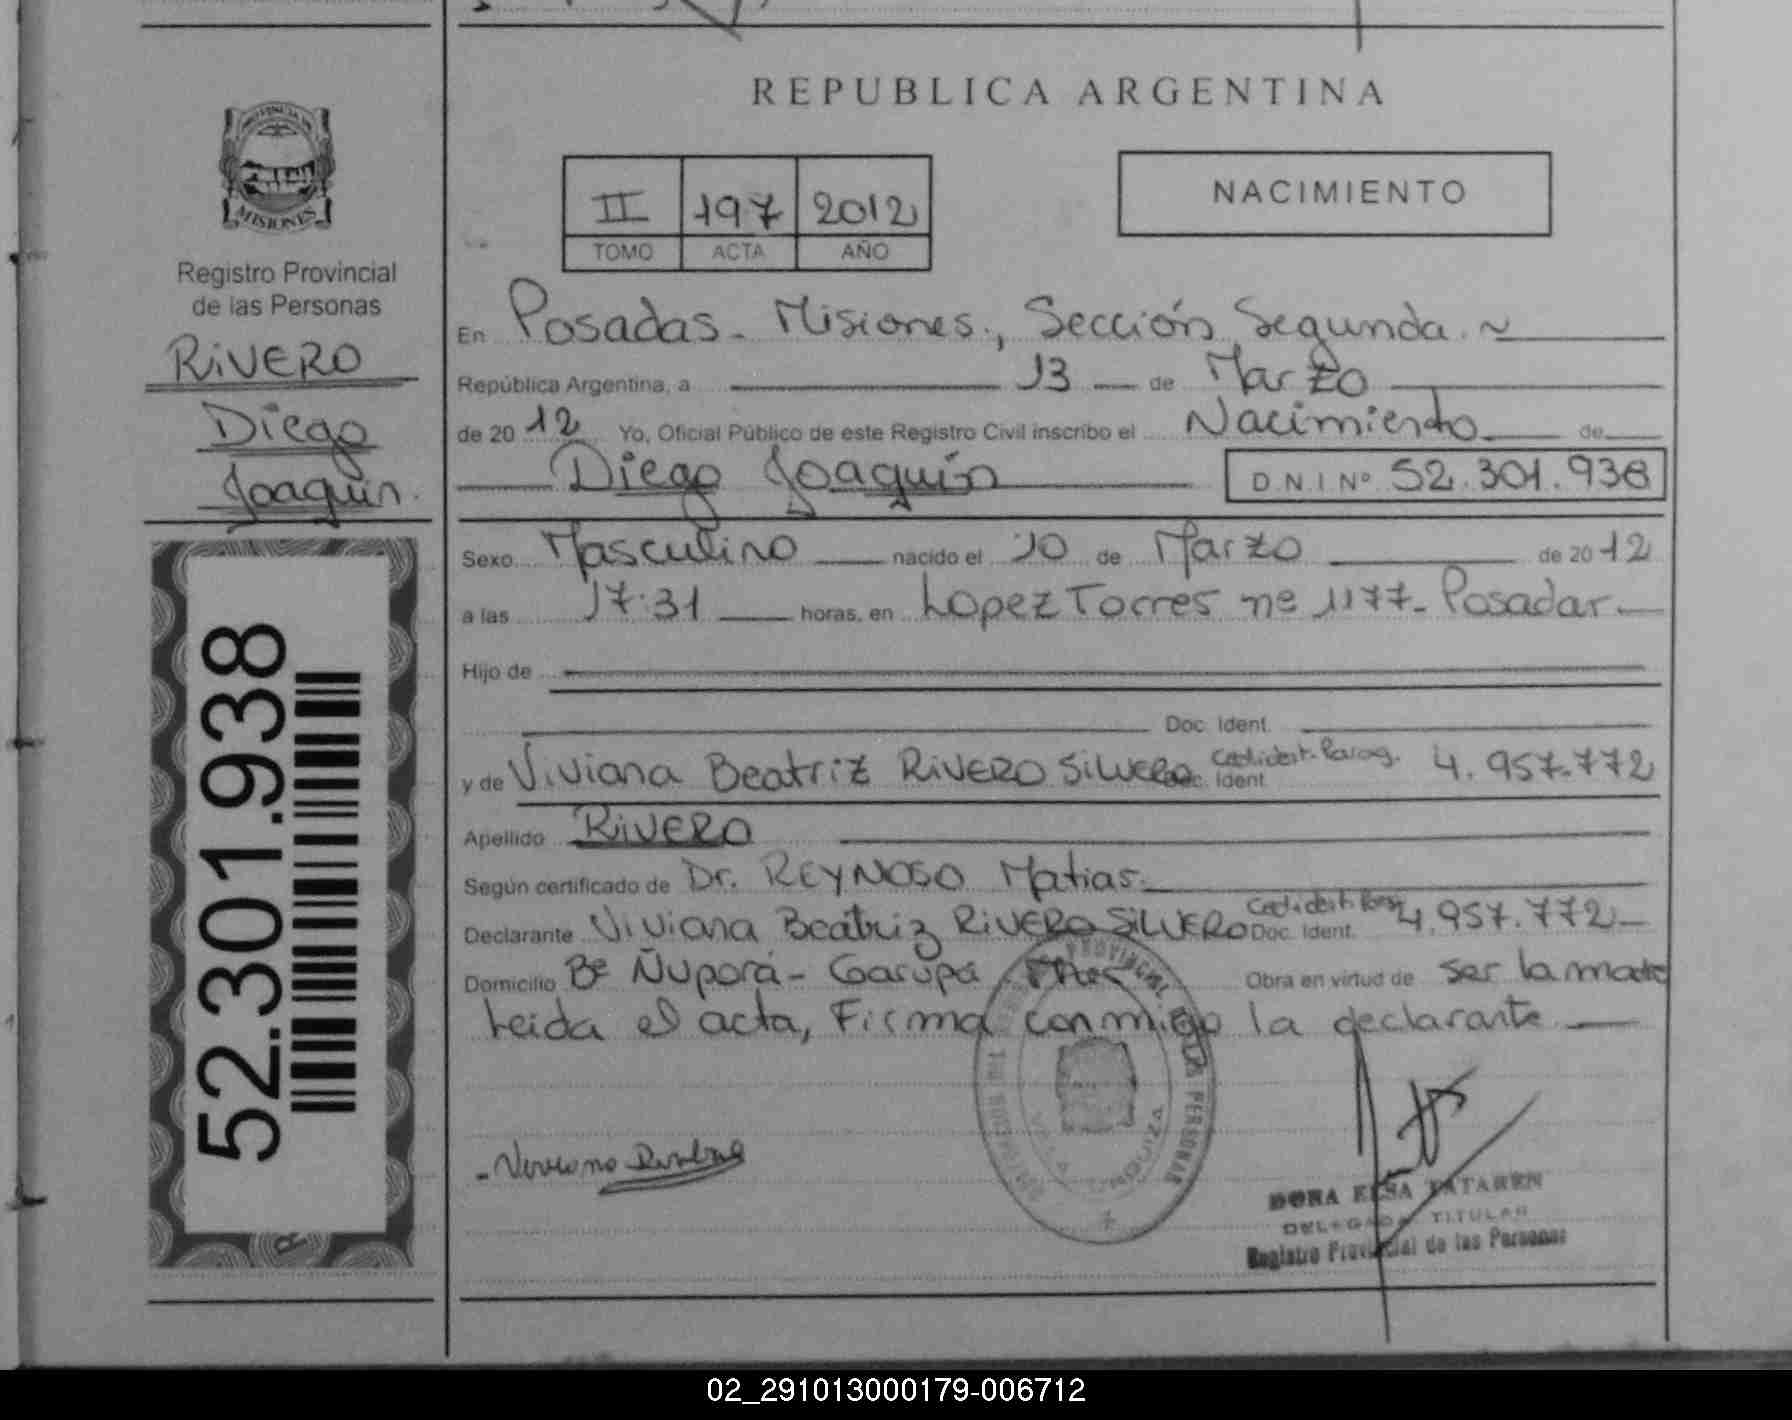 REPUBLICA ARGENTINA
PROVINCIA DE
MISIONES
Registro Provincial
de las Personas
RIVERO
Diego
Joaquin.
52.301.938
II 197 2012
TOMO ACTA AÑO
NACIMIENTO
En Posadas - Misiones., Sección Segunda. ~
República Argentina, a 13 de Marzo
de 20 12 Yo, Oficial Público de este Registro Civil inscribo el Nacimiento de
Diego Joaquín D N I Nº 52.301.938
Sexo Masculino nacido el 10 de Marzo de 20 12
a las 17:31 horas, en Lopez Torres nº 1177- Posadas.
Hijo de
Doc. Ident.
y de Viviana Beatriz RIVERO SILVERO Ced.ident. Parag. Doc. Ident. 4.957.772
Apellido RIVERO
Según certificado de Dr. REYNOSO Matias.
Declarante Viviana Beatriz RIVERO SILVERO Ced.ident. Parag. Doc. Ident. 4.957.772-
Domicilio Bº Ñuporá - Garupá Mnes Obra en virtud de ser la madre
Leida el acta, Firma conmigo la declarante
PROVINCIAL DE LAS PERSONAS
VILLA URQUIZA
DORA ELSA TATAREN
DELEGADA TITULAR
Registro Provincial de las Personas
02_291013000179-006712